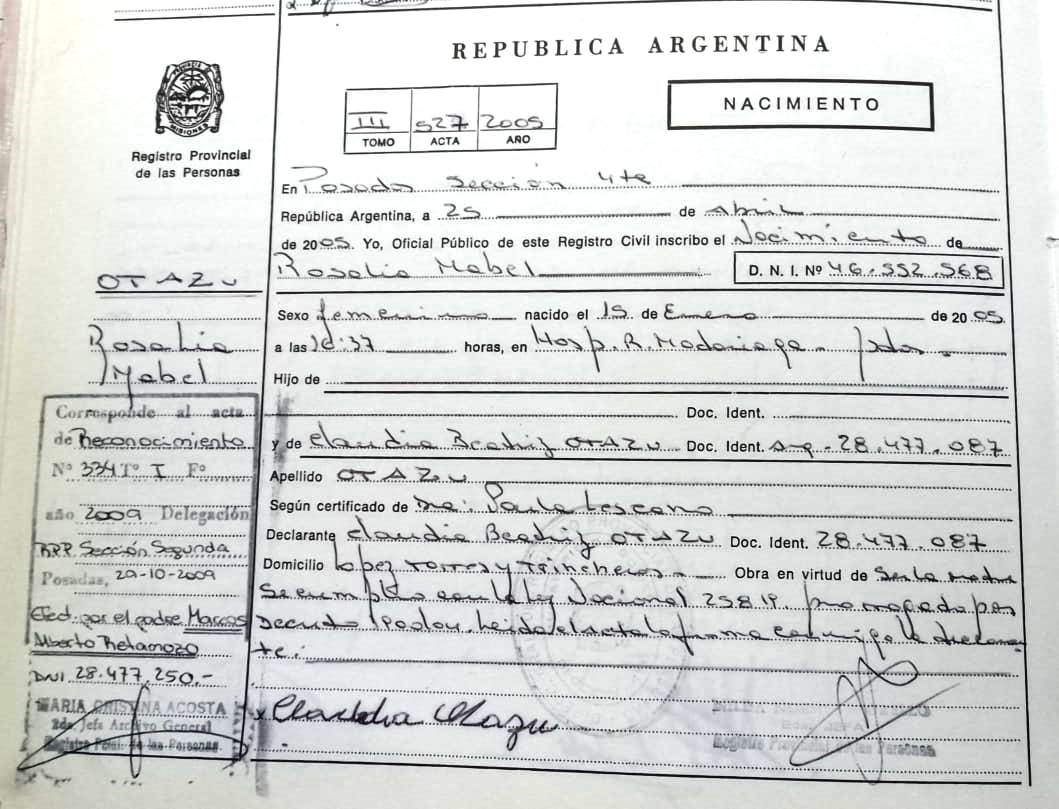 REPUBLICA ARGENTINA
NACIMIENTO
III 527 2005
TOMO ACTA AÑO
PROVINCIA DE MISIONES
Registro Provincial
de las Personas
En Posadas Sección 4ta
República Argentina, a 25 de Abril
de 2005. Yo, Oficial Público de este Registro Civil inscribo el Nacimiento de
Rosalia Mabel D. N. I. Nº 46.552.568
Sexo femenino nacido el 15 de Enero de 2005
a las horas, en Hosp. R. Madariaga - Pdas -
Hijo de
Doc. Ident.
y de Claudia Beatriz OTAZU Doc. Ident. Arg. 28.477.087
Apellido OTAZU
Según certificado de Dra: Paula Lescano
Declarante Claudia Beatriz OTAZU Doc. Ident. 28.477.087
Domicilio Lopez Torres y Trincheras - Obra en virtud de Ser la madre
Se cumple con la Ley Nacional 25819. prorrogada por
Decreto leida el acta la firma conmigo la declaran
te.
Claudia Otazu
OTAZU
Rosalia
Mabel
Corresponde al acta
de Reconocimiento
Nº 334 Tº I Fº
año 2009 Delegación
RPP. Sección Segunda
Posadas, 29-10-2009
Efect. por el padre Marcos
Alberto Retamozo
DNI 28.477.250.-
MARIA CRISTINA ACOSTA
2da. Jefa Archivo General
Registro Pcial. de las Personas
Registro Provincial de las Personas